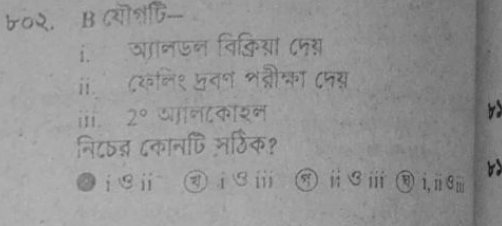 ৮০২. B যৌগটি—
i. অ্যালডল বিক্রিয়া দেয়
ii. ফেলিং দ্রবণ পরীক্ষা দেয়
iii. 2° অ্যালকোহল
নিচের কোনটি সঠিক?
i ও ii খ i ও iii গ ii ও iii ঘ i, ii ও iii